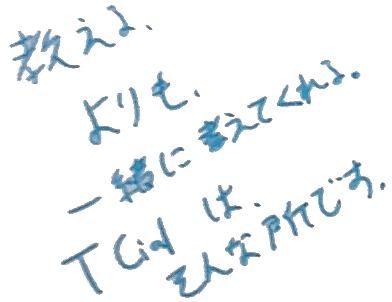 教える、
よりも、
一緒に考えてくれる。
TCid は、
そんな所です。